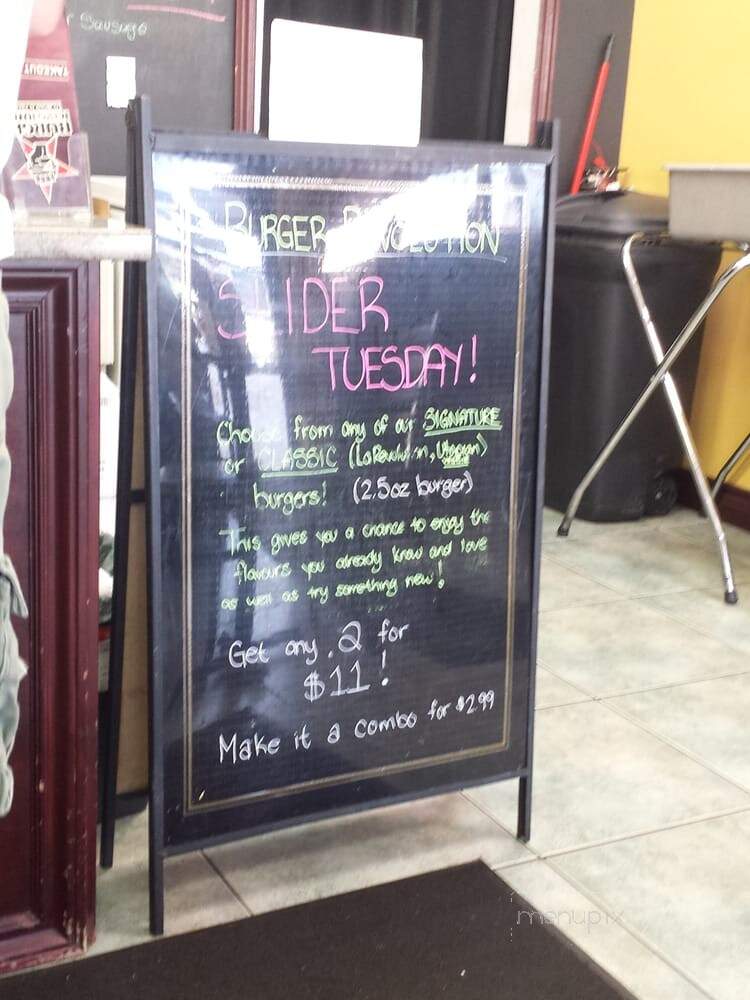 Sausage
TAKEOUT
BURGER REVOLUTION
SLIDER
TUESDAY!
Choose from any of our SIGNATURE
or CLASSIC (LaRevolution, Utopian)
burgers! (2.5oz burger)
This gives you a chance to enjoy the
flavours you already know and love
as well as try something new!
Get any 2 for
$11!
Make it a combo for $2.99
menupix